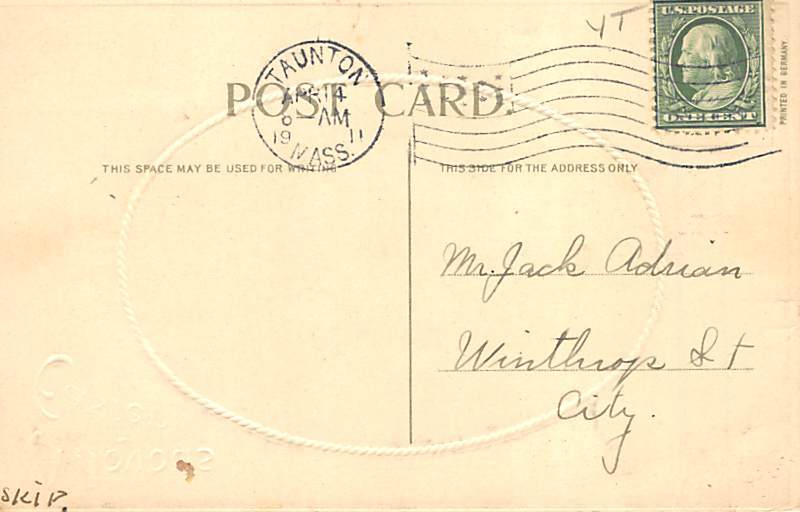 YT
U.S.POSTAGE
ONE CENT
PRINTED IN GERMANY.
TAUNTON
APR 14
AM
1911
MASS.
POST CARD.
THIS SPACE MAY BE USED FOR WRITING
THIS SIDE FOR THE ADDRESS ONLY
Mr. Jack Adrian
Winthrop St
City.
SKIP.